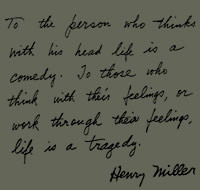 To the person who thinks
with his head life is a
comedy. To those who
think with their feelings, or
work through their feelings,
life is a tragedy.
Henry Miller